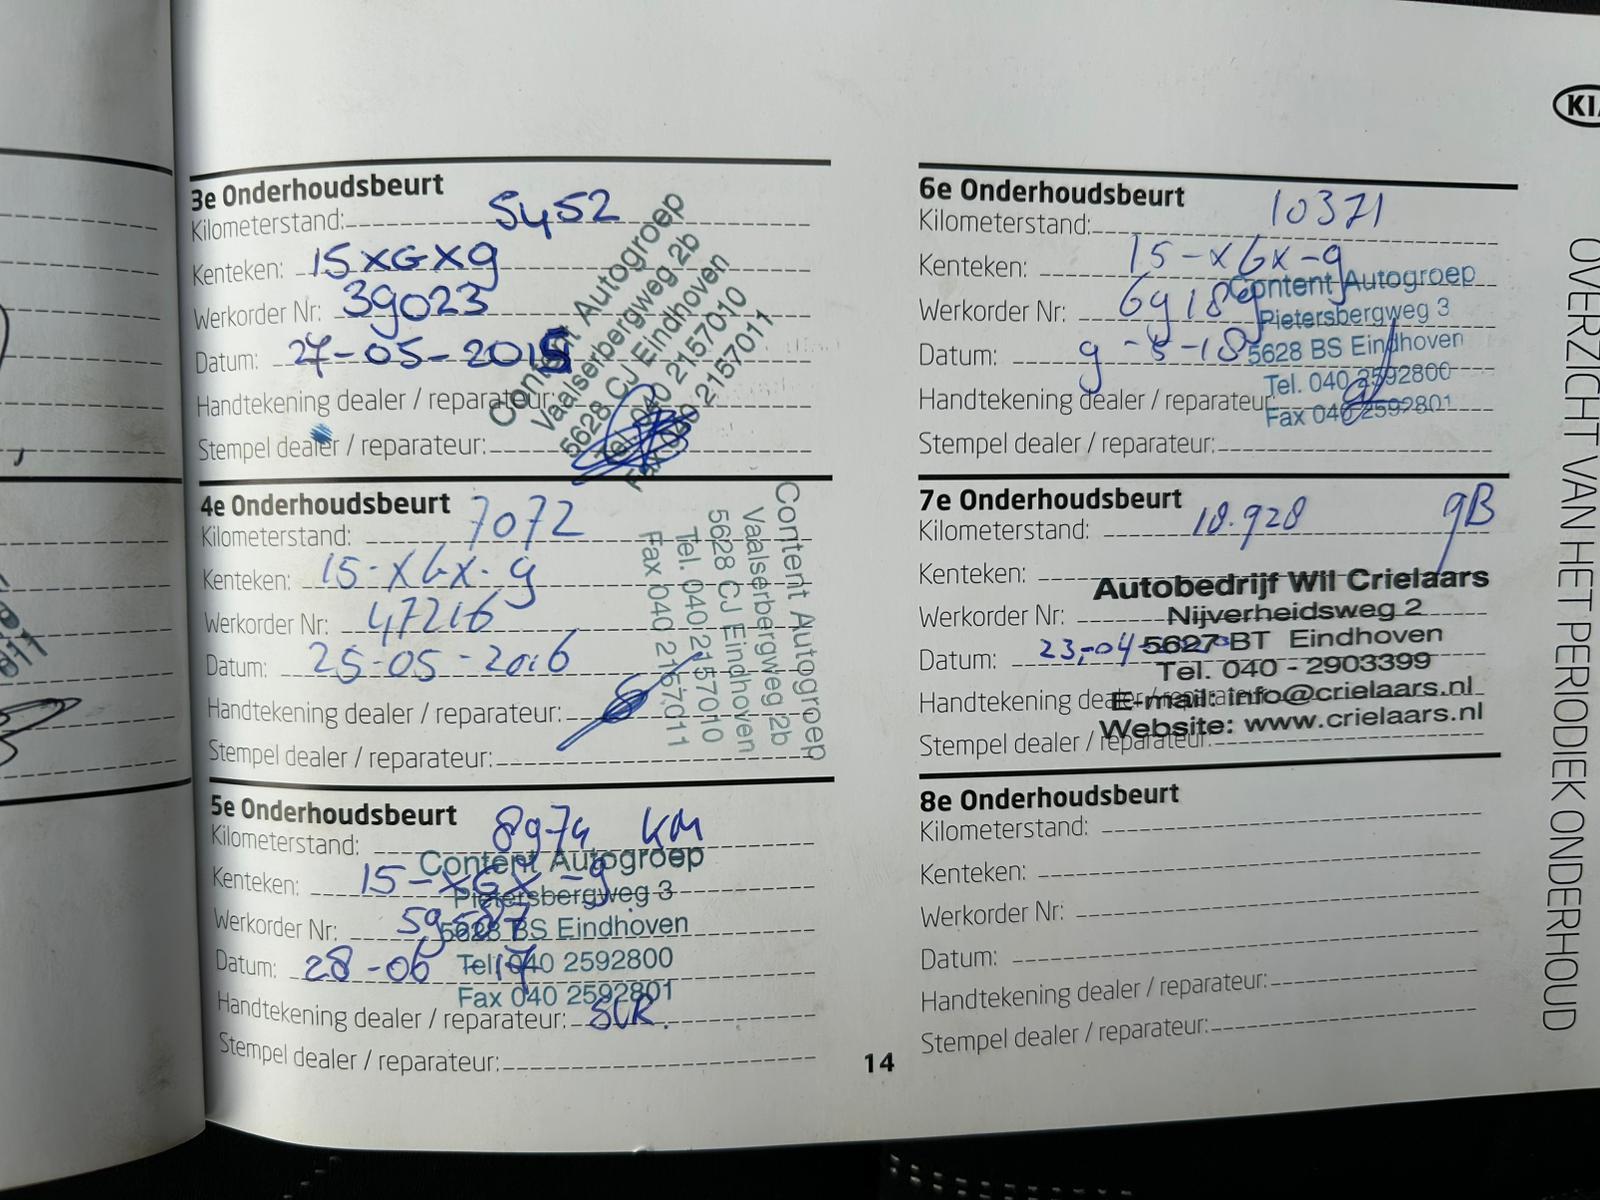 3e Onderhoudsbeurt
Kilometerstand: 5452
Kenteken: 15XGXg
Werkorder Nr: 39023
Datum: 27-05-2015
Handtekening dealer / reparateur:
Stempel dealer / reparateur:
Content Autogroep
Vaalserbergweg 2b
5628 CJ Eindhoven
Tel. 040 2157010
Fax 040 2157011
4e Onderhoudsbeurt
Kilometerstand: 7072
Kenteken: 15-XGX-g
Werkorder Nr: 47216
Datum: 25-05-2016
Handtekening dealer / reparateur:
Stempel dealer / reparateur:
Content Autogroep
Vaalserbergweg 2b
5628 CJ Eindhoven
Tel. 040 2157010
Fax 040 2157011
5e Onderhoudsbeurt
Kilometerstand: 8974 KM
Kenteken: 15-XGX-g
Werkorder Nr: 59587
Datum: 28-06-17
Handtekening dealer / reparateur: SCR.
Stempel dealer / reparateur:
Content Autogroep
Pietersbergweg 3
5628 BS Eindhoven
Tel. 040 2592800
Fax 040 2592801
14
KIA
6e Onderhoudsbeurt
Kilometerstand: 10371
Kenteken: 15-XGX-g
Werkorder Nr: 69189
Datum: 9-5-18
Handtekening dealer / reparateur:
Stempel dealer / reparateur:
Content Autogroep
Pietersbergweg 3
5628 BS Eindhoven
Tel. 040 2592800
Fax 040 2592801
7e Onderhoudsbeurt
Kilometerstand: 18.928 gB
Kenteken:
Werkorder Nr:
Datum: 23-04
Handtekening dealer / reparateur:
Stempel dealer / reparateur:
Autobedrijf Wil Crielaars
Nijverheidsweg 2
5627 BT Eindhoven
Tel. 040 - 2903399
E-mail: info@crielaars.nl
Website: www.crielaars.nl
8e Onderhoudsbeurt
Kilometerstand:
Kenteken:
Werkorder Nr:
Datum:
Handtekening dealer / reparateur:
Stempel dealer / reparateur:
OVERZICHT VAN HET PERIODIEK ONDERHOUD